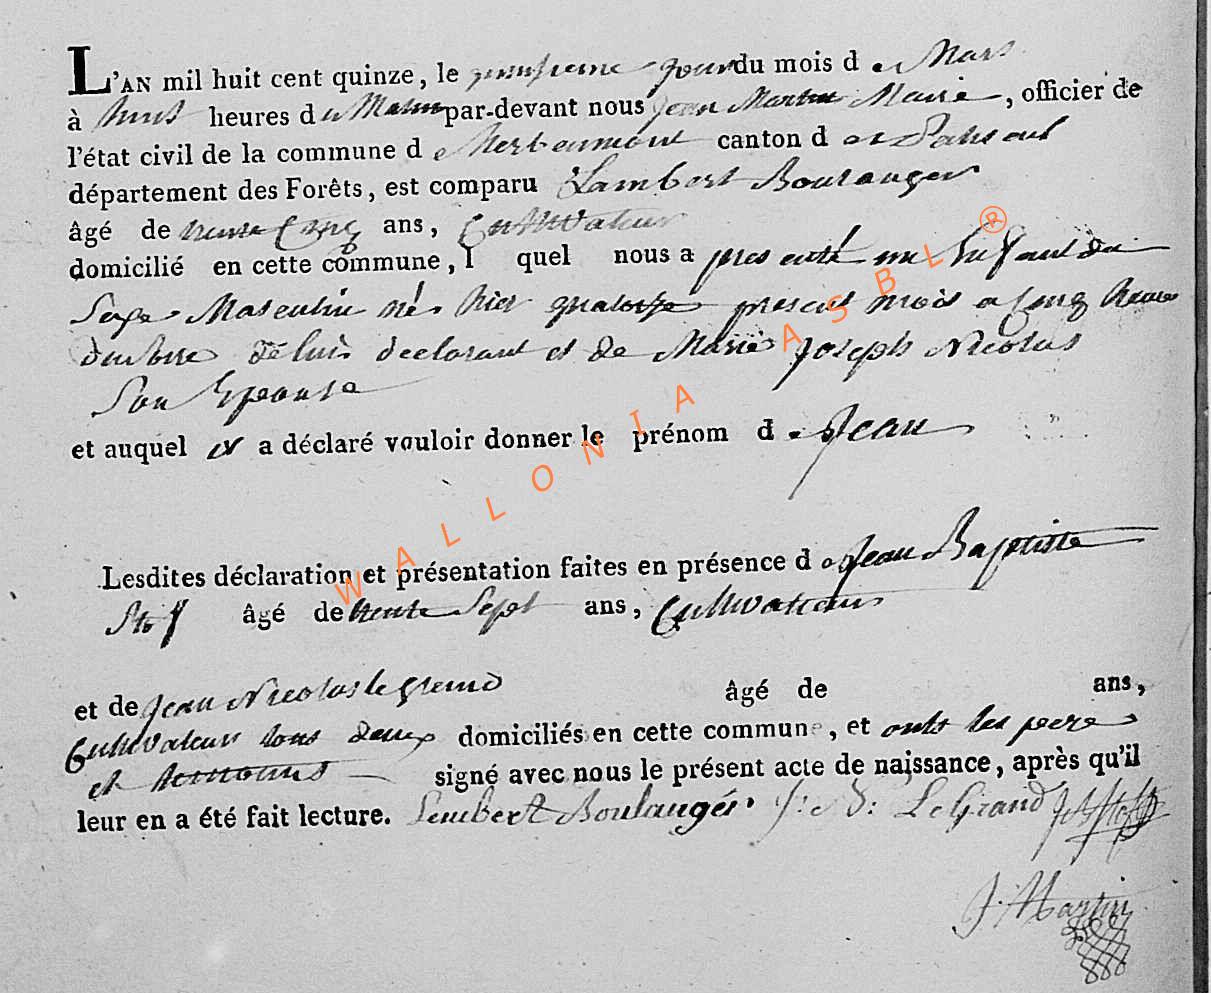 L'AN mil huit cent quinze, le quinsieme jour du mois de Mars
à huit heures du Matin par-devant nous jean Martin Maire, officier de
l'état civil de la commune de Herbeumont canton de Paliseul
département des Forêts, est comparu Lambert Boulanger
âgé de trente Cinq ans, Cultivateur
domicilié en cette commune, lquel nous a presenté un Enfant du
Sexe Masculin né hier quatorze present mois a Cinq heures
de lui declarant et de Marie joseph Nicolas
Son Epouse
et auquel il a déclaré vouloir donner le prénom de Jean
Lesdites déclaration et présentation faites en présence de Jean Baptiste
Stof âgé de trente Sept ans, Cultivateur
et de Jean Nicolas le Grand âgé de ans,
Cultivateur tous deux domiciliés en cette commune, et onts les pere
et temoins signé avec nous le présent acte de naissance, après qu'il
leur en a été fait lecture. Lambert Boulanger J: N: LeGrand JBStof
J. Martin
WALLONIA ASBL ®